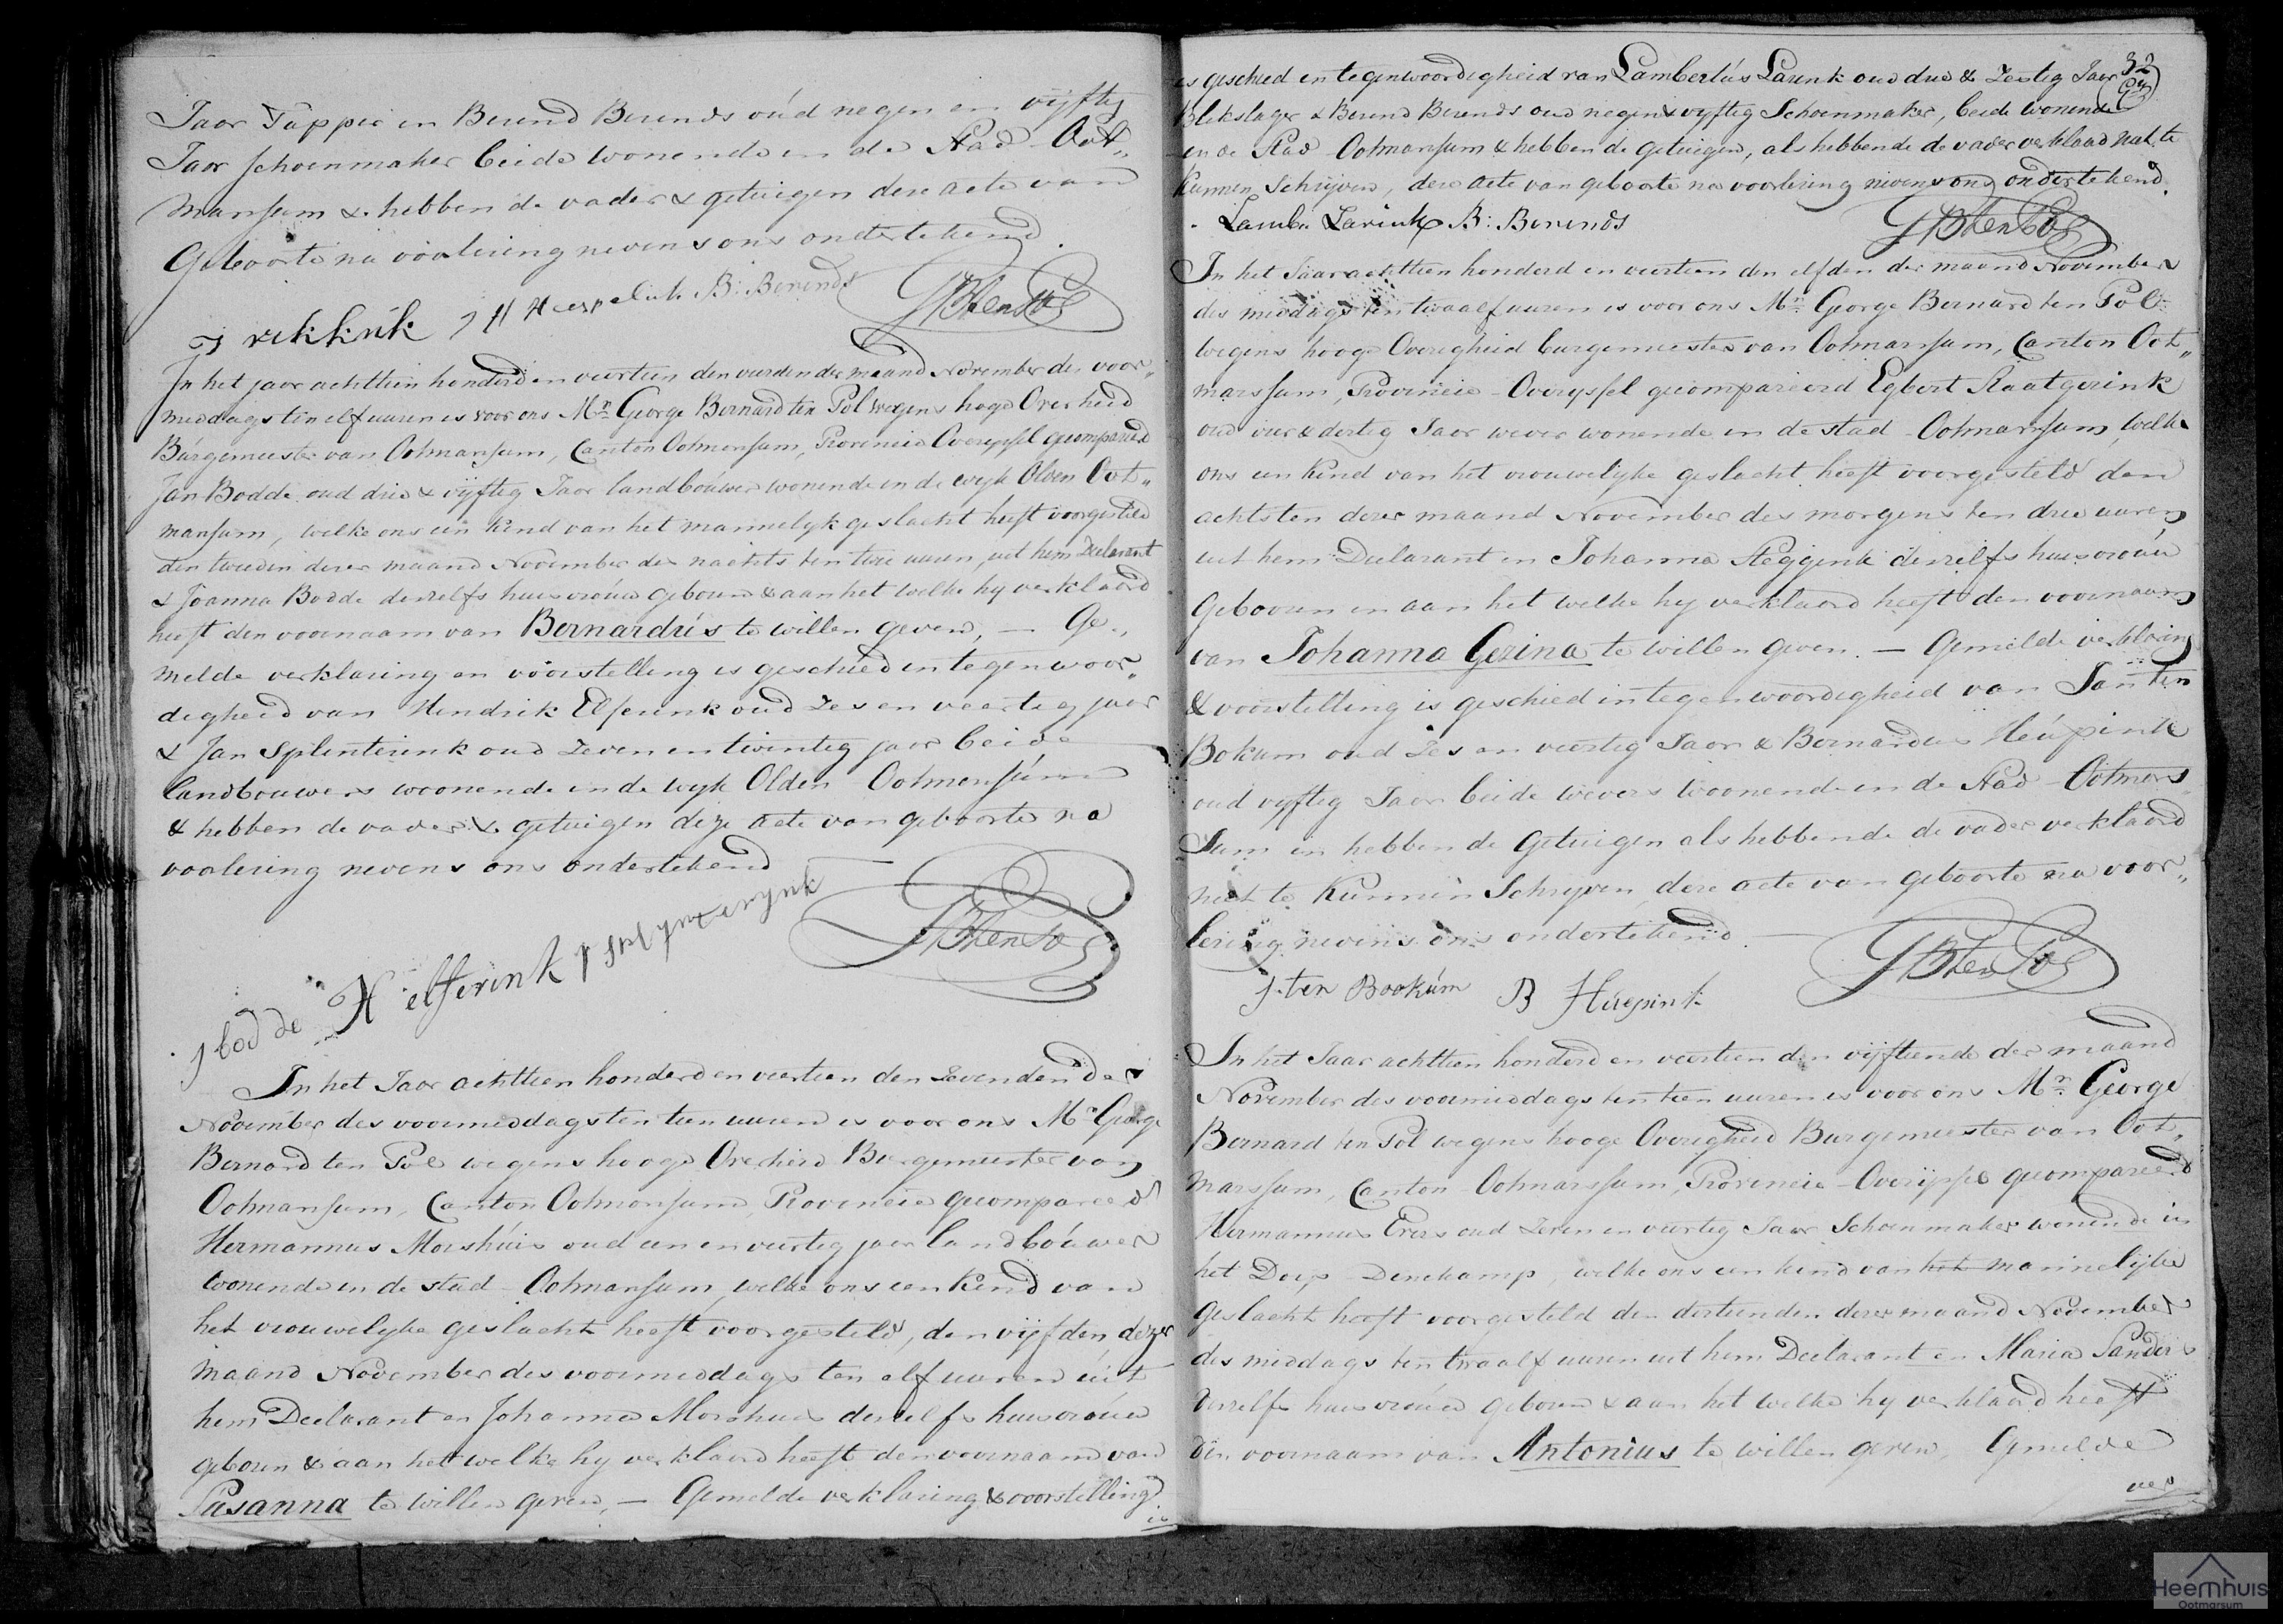 Jaar Tapper en Berend Berends oúd negen en vijftig
Jaar schoenmaker beide wonende in de Stad Oot„
marsum & hebben de vader & getuigen deze acte van
Geboorte na voorlezing nevens ons ondertekend.
B: Berends GBtenPol
In het jaar achttien honderd en veertien den vierden der maand November des voor„
middags ten elf uuren is voor ons Mr. George Bernard ten Pol wegens hoge Overheid
Búrgemeester van Ootmarsum, Canton Ootmarsum, Provincie Overijssel gecompareerd
Jan Bodde oud drie & vijftig Jaar landbóuwer wonende in de wyk Olden Oot„
marsum, welke ons een kind van het mannelyk geslacht heeft voorgesteld
den tweeden dezer maand November des nachts ten twee uuren, uit hem Declarant
& Joanna Bodde deszelfs huisvróuw geboren & aan het welke hy verklaard
heeft den voornaam van Bernardús te willen geven, — Ge„
melde verklaring en vóorstelling is geschied in tegenwoor„
digheid van Hendrik Elferink oud zes en veertig jaar
& Jan Splinterink oud zeven en twintig jaar beide
landbouwers woonende in de wyk Olden Ootmarsúm
& hebben de vader & getuigen deze acte van geboorte na
voorlezing nevens ons ondertekend
j bodde H elferink j splynterynk GBtenPol
In het Jaar achttien honderd en veertien den zevenden der
November des voormiddags ten tien uuren is voor ons Mr George
Bernard ten Pol wegens hooge Overheid Burgemeester van
Ootmarsum, Canton Ootmarsum, Provincie gecompareerd
Hermannus Morshúis oud een en veertig jaar landbóuwer
wonende in de stad Ootmarsum, welke ons een kind van
het vrouwelyke geslacht heeft voorgesteld, den vijfden dezer
maand November des voormiddags ten elf uuren úit
hem Declarant en Johanna Morshuis deszelfs huisvróuw
geboren & aan het welke hy verklaard heeft den voornaam van
Susanna te willen geven, — Gemelde verklaring & voorstelling
is
32
is geschied in tegenwoordigheid van Lambertús Larink oud drie & zestig Jaar
Blekslager & Berend Berends oud negen & vyftig Schoenmaker, beide wonende
in de Stad Ootmarsum & hebben de getuigen, als hebbende de vader verklaard niet te
kunnen schrijven, deze acte van geboorte na voorlezing nevens ons ondertekend.
Lamb: Larink B: Berends GBtenPol
In het Jaar achttien honderd en veertien den elfden der maand November
des middags ten twaalf uuren is voor ons Mr. George Bernard ten Pol
wegens hooge Overigheid burgemeester van Ootmarsum, Canton Oot„
marssum, Provincie Overyssel gecompareerd Egbert Staatgerink
oud vier & dertig Jaar wever wonende in de stad Ootmarsum, welke
ons een kind van het vrouwelyke geslacht heeft voorgesteld den
achtsten dezer maand November des morgens ten drie uuren
uit hem Declarant en Johanna Steggink deszelfs huisvroúw
Gebooren en aan het welke hy verklaard heeft den voornaam
van Johanna Gezina te willen geven. — Gemelde verklaring
& voorstelling is geschied in tegenwoordigheid van Jan ten
Bokum oud zes en veertig Jaar & Bernardus Heúpink
oud vyftig Jaar beide wevers woonende in de Stad Ootmars„
sum en hebben de Getuigen als hebbende de vader verklaard
niet te kunnen Schryven, deze acte van geboorte na voor„
lezing nevens ons ondertekend.
J: ten Bookúm B Húepink GBtenPol
In het Jaar achttien honderd en veertien den vijftiende der maand
November des voormiddags ten tien uuren is voor ons Mr. George
Bernard ten Pol wegens hooge Overigheid Burgemeester van Oot„
marssum, Canton Ootmarssum, Provincie Overijssel gecompareerd
Hermannus Evers oud zeven en veertig Jaar Schoenmaker wonende in
het Dorp Denekamp, welke ons een kind van het mannelijke
geslacht heeft voorgesteld den dertienden dezer maand November
des middags ten twaalf uuren uit hem Declarant en Maria Sanders
deszelfs huisvróuw geboren & aan het welke hy verklaard heeft
den voornaam van Antonius te willen geven, Gemelde
ver
Heemhuis
Ootmarsum